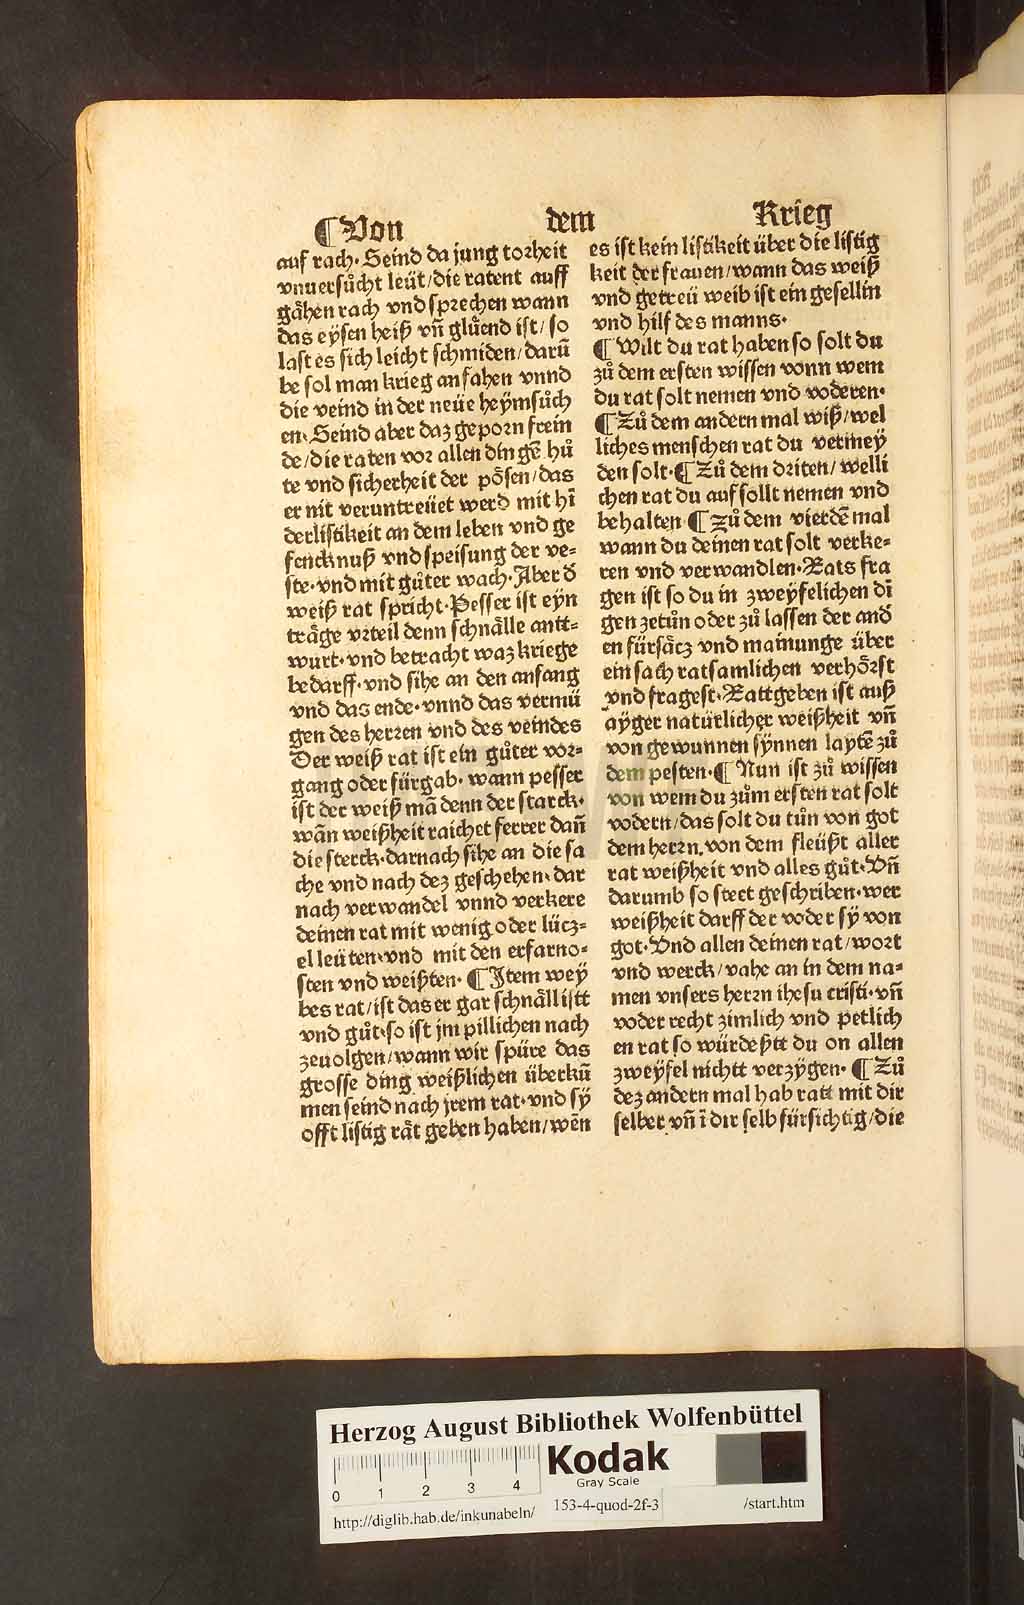 ¶ Von dem Krieg
auf rach. Seind da jung torheit
vnuersůcht leüt/die ratent auff
gähen rach vnd sprechen wann
das eysen heiß vñ glůend ist/ so
last es sich leicht schmiden/darū
be sol man krieg anfahen vnnd
die veind in der neüe heÿmsůch
en. Seind aber daz geporn frein
de/die raten vor allen dingē hů
te vnd sicherheit der pösen/das
er nit veruntreüet werd mit hī
derlistikeit an dem leben vnd ge
fencknuß vnd speisung der ve=
ste. vnd mit gůter wach. Aber d̕
weiß rat spricht. Pesser ist eÿn
träge vrteil denn schnälle antt=
wurt. vnd betracht waz kriege
bedarff. vnd sihe an den anfang
vnd das ende. vnnd das vermü
gen des herren vnd des veindes
Der weiß rat ist ein gůter vor=
gang oder fürgab. wann pesser
ist der weiß mā denn der starck.
wān weißheit raichet ferrer dañ
die sterck. darnach sihe an die sa
che vnd nach dez geschehen. dar
nach verwandel vnnd verkere
deinen rat mit wenig oder lücz=
el leüten. vnd mit den erfarno=
sten vnd weißten. ¶ Item weÿ
bes rat/ist das er gar schnäll istt
vnd gůt. so ist jm pillichen nach
zeuolgen/wann wir spüre das
grosse ding weißlichen überkū
men seind nach jrem rat. vnd sÿ
offt listig rät geben haben/wēn
es ist kein listikeit über die listig
keit der frauen/wann das weiß
vnd getreü weib ist ein gesellin
vnd hilf des manns.
¶ Wilt du rat haben so solt du
zů dem ersten wissen vonn wem
du rat solt nemen vnd voderen.
¶ Zů dem andern mal wiß/wel
liches menschen rat du vermeÿ
den solt. ¶ Zů dem driten/welli
chen rat du auf sollt nemen vnd
behalten ¶ zů dem vierdē mal
wann du deinen rat solt verke=
ren vnd verwandlen. Rats fra
gen ist so du in zweÿfelichen dī
gen zetůn oder zů lassen der and̕
en fürsäcz vnd mainunge über
ein sach ratsamlichen verhörst
vnd fragest. Rattgeben ist auß
aÿger natürlicher weißheit vñ
von gewunnen sÿnnen laÿtē zů
dem pesten. ¶ Nun ist zů wissen
von wem du zům ersten rat solt
vodern/das solt du tůn von got
dem herrn. von dem fleüßt aller
rat weißheit vnd alles gůt. Vñ
darumb so steet geschriben. wer
weißheit darff der voder sÿ von
got. Vnd allen deinen rat/wort
vnd werck/vahe an in dem na=
men vnsers herrn ihesu cristi. vñ
voder recht zimlich vnd petlich
en rat so würdeßtt du on allen
zweÿfel nichtt verzÿgen. ¶ Zů
dez andern mal hab ratt mit dir
selber vñ ī dir selb fürsichtig/die
Herzog August Bibliothek Wolfenbüttel
Kodak
Gray Scale
0 1 2 3 4
http://diglib.hab.de/inkunabeln/ 153-4-quod-2f-3 /start.htm